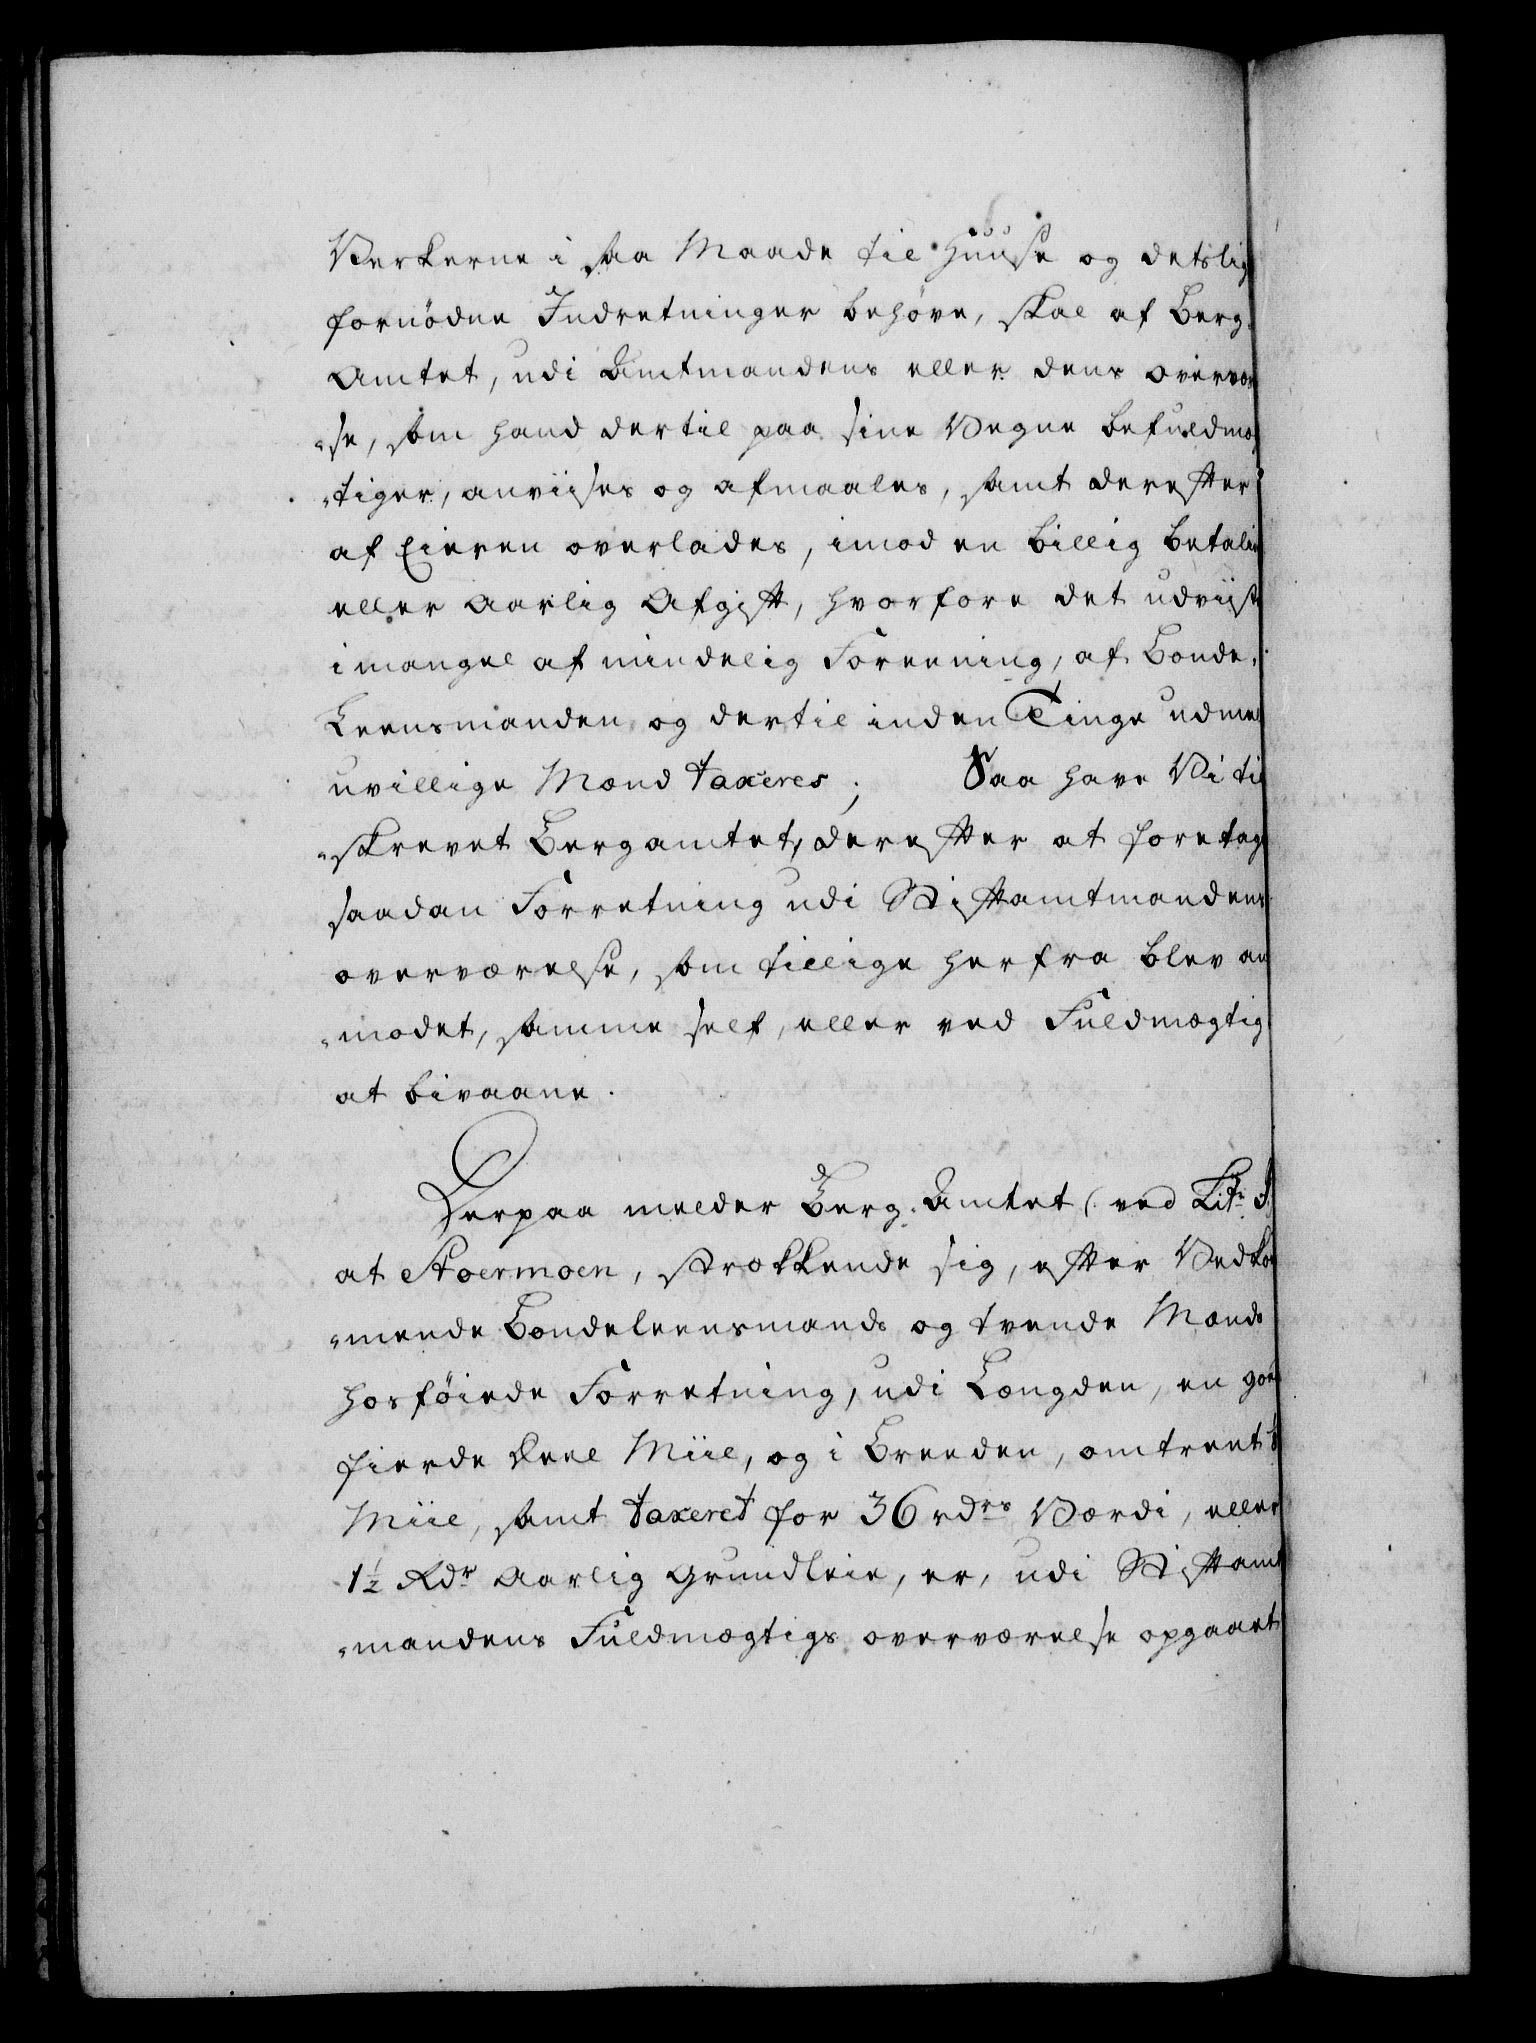 Verkerne i saa Maade til Huuse og detslig
fornödne Indretninger behøve, skal af Berg-
Amtet, udi Amtmandens eller dens overvær
"se, som hand dertil paa sine Vegne befuldmæg
"tiger, anviises og afmaales, samt derefter
af Eieren overlades, imod en billig betalin
eller aarlig Afgift, hvorfore det udviiste
i mangel af mindelig Foreening, af Bonde-
Leensmanden og dertil inden Tinge udmel
uvillige Mænd taxeres; Saa have Vi til
"skrevet Bergamtet, derefter at foretage
saadan Forretning udi Stiftamtmandens
overværelse, som tillige herfra blev an
"modet, samme self, eller ved Fuldmægtig
at bivaane.
Derpaa melder Berg-Amtet (ved Litr
at Stoermoen, strækkende sig, efter Vedkom
"mende Bondeleensmands og tvende Mænds
hosføiede Forretning, udi Længden, en god
fierde Deel Miil, og i Breeden, omtrent
Miil, samt taxeret for 36 rdrs Værdi, eller
1½ Rdr aarlig Grundleie, er, udi Stiftamt
"mandens Fuldmægtigs overværelse opgaaet